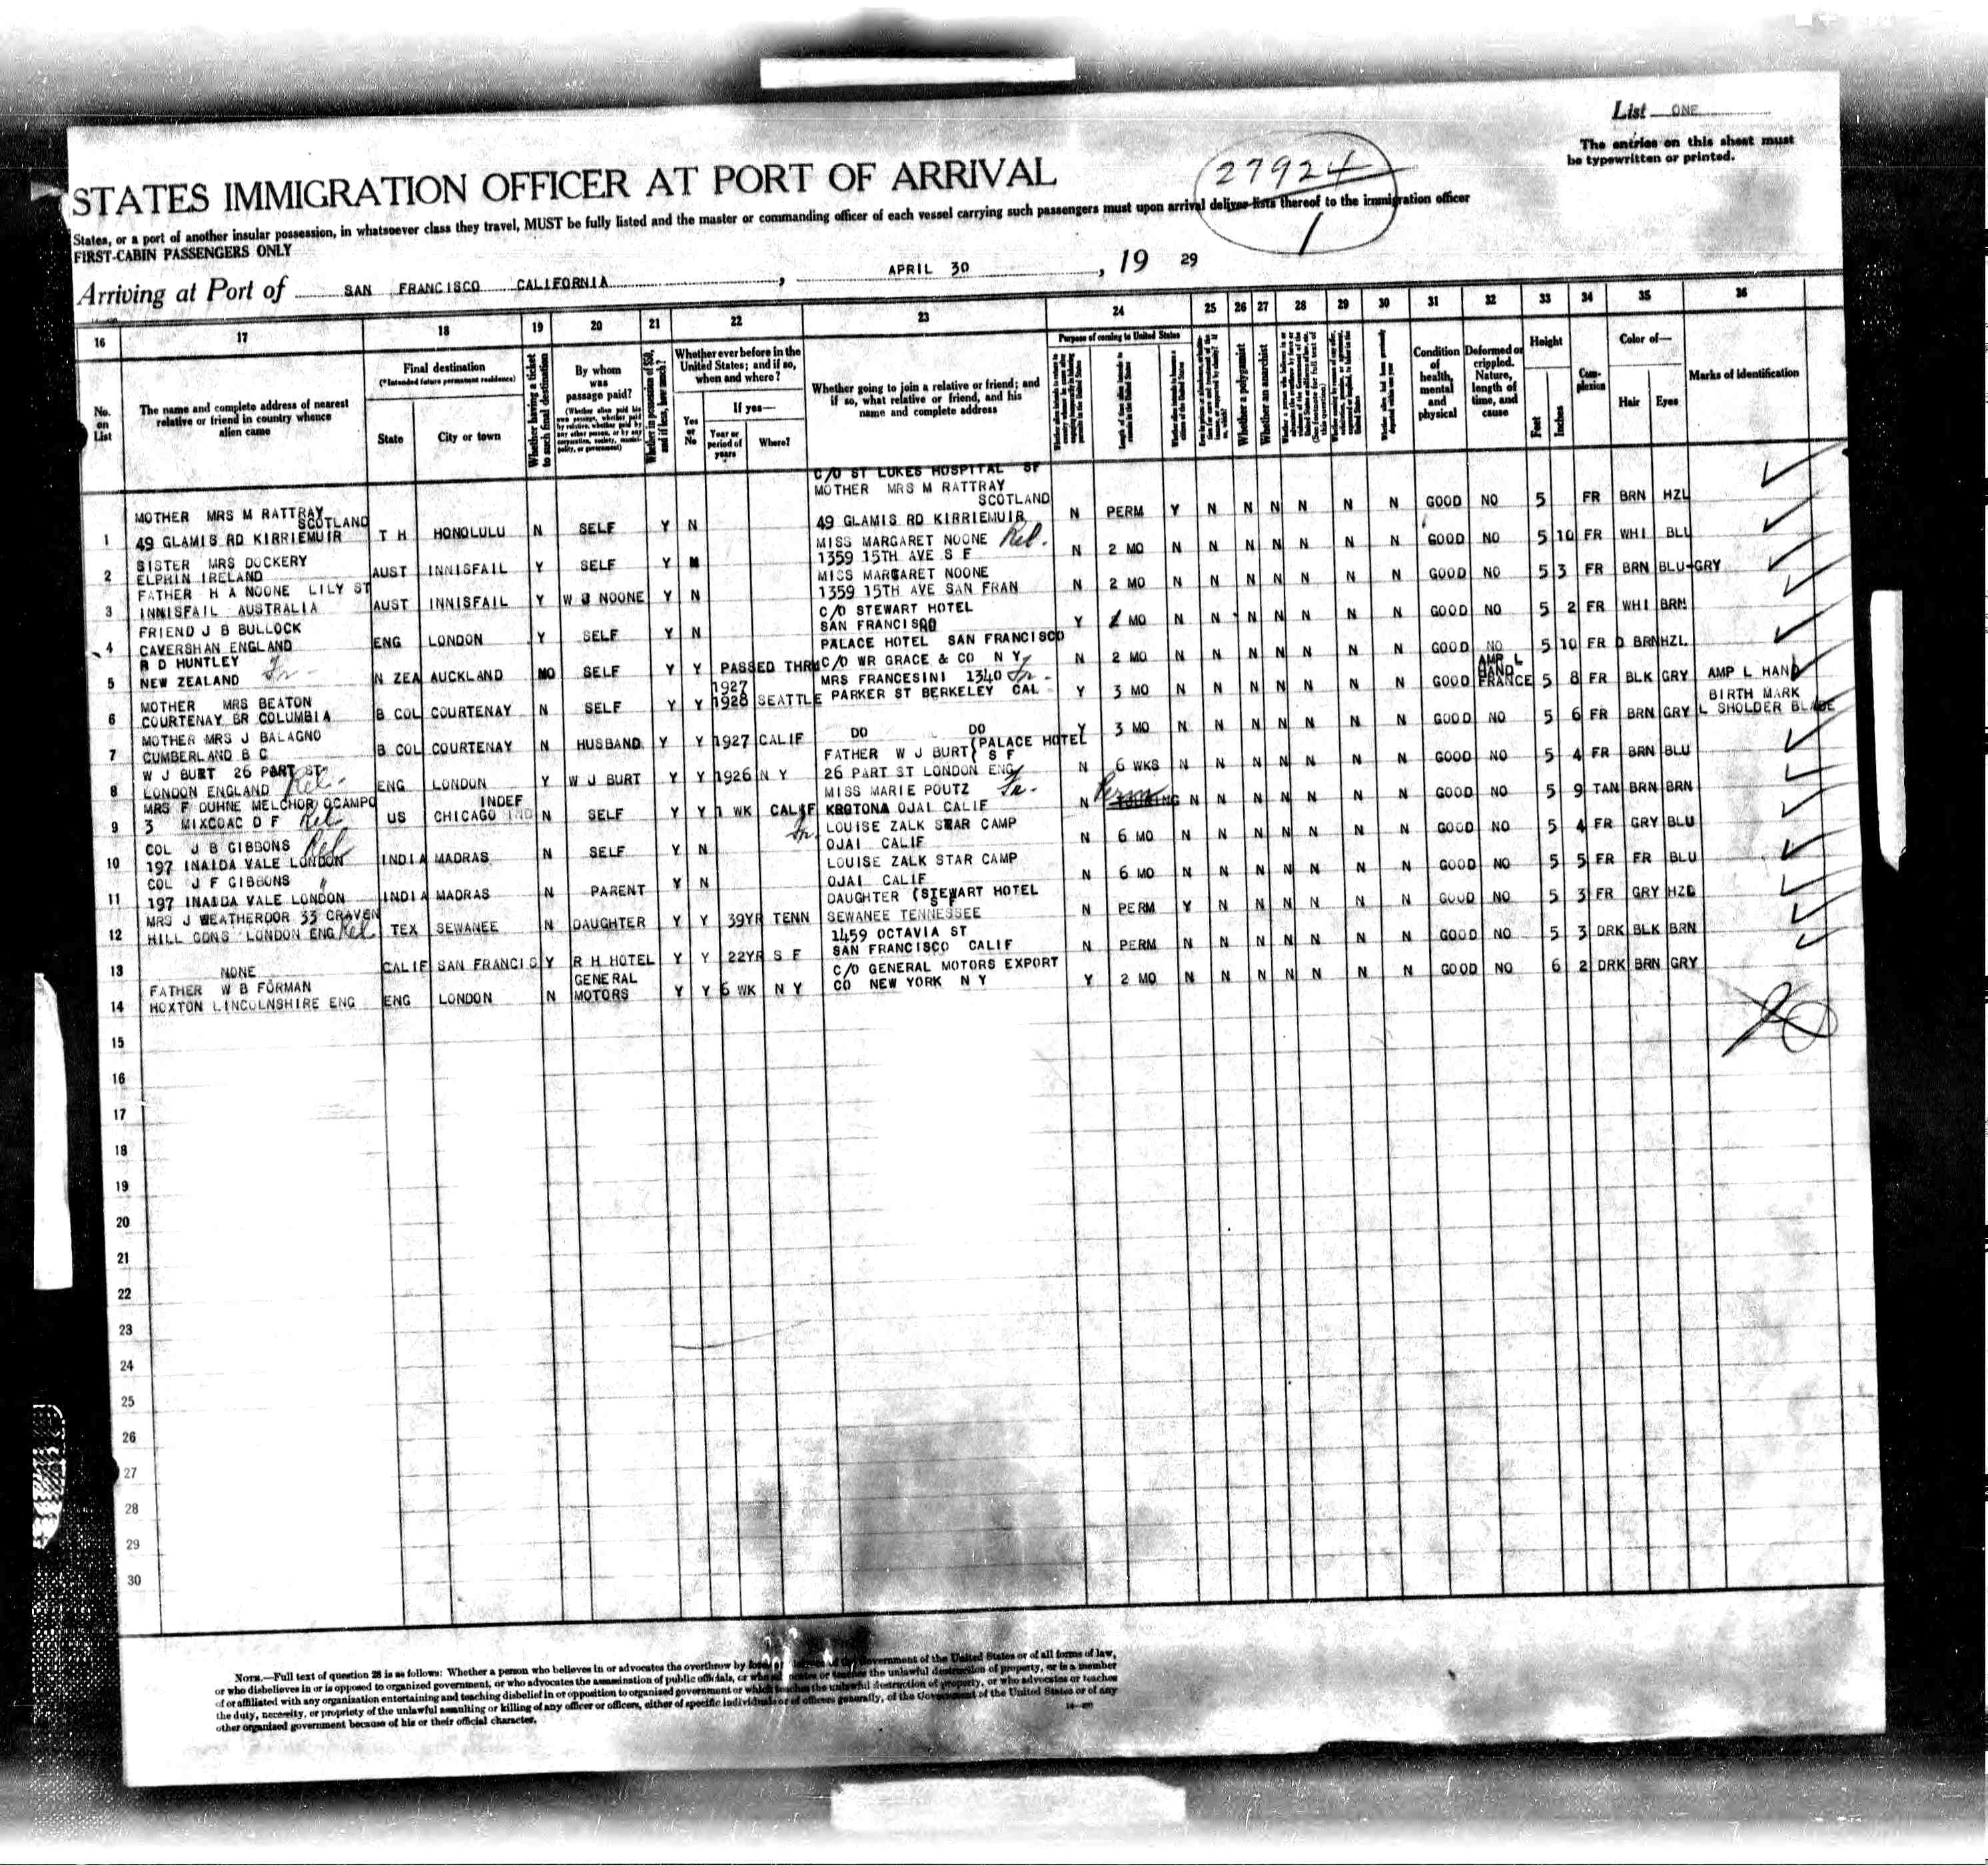 List ONE
The entries on this sheet must
be typewritten or printed.
27924
1
STATES IMMIGRATION OFFICER AT PORT OF ARRIVAL
States, or a port of another insular possession, in whatsoever class they travel, MUST be fully listed and the master or commanding officer of each vessel carrying such passengers must upon arrival deliver lists thereof to the immigration officer
FIRST-CABIN PASSENGERS ONLY
Arriving at Port of SAN FRANCISCO CALIFORNIA, APRIL 30, 19 29
16 17 18 19 20 21 22 23 24 25 26 27 28 29 30 31 32 33 34 35 36
No. on List
The name and complete address of nearest relative or friend in country whence alien came
Final destination
(*Intended future permanent residence)
State
City or town
Whether having a ticket to such final destination
By whom was passage paid?
Whether in possession of $50, and if less, how much?
Whether ever before in the United States; and if so, when and where?
Yes or No
If yes—
Year or period of years
Where?
Whether going to join a relative or friend; and if so, what relative or friend, and his name and complete address
Purpose of coming to United States
Whether a polygamist
Whether an anarchist
Condition of health, mental and physical
Deformed or crippled. Nature, length of time, and cause
Height
Feet
Inches
Complexion
Color of—
Hair
Eyes
Marks of identification
1 MOTHER MRS M RATTRAY SCOTLAND 49 GLAMIS RD KIRRIEMUIR T H HONOLULU N SELF Y N C/O ST LUKES HOSPITAL SF MOTHER MRS M RATTRAY SCOTLAND 49 GLAMIS RD KIRRIEMUIR N PERM Y N N N N N N GOOD NO 5 FR BRN HZL
2 SISTER MRS DOCKERY ELPHIN IRELAND AUST INNISFAIL Y SELF Y N MISS MARGARET NOONE Rel. 1359 15TH AVE S F N 2 MO N N N N N N N GOOD NO 5 10 FR WHI BLU
3 FATHER H A NOONE LILY ST INNISFAIL AUSTRALIA AUST INNISFAIL Y W J NOONE Y N MISS MARGARET NOONE 1359 15TH AVE SAN FRAN N 2 MO N N N N N N N GOOD NO 5 3 FR BRN BLU-GRY
4 FRIEND J B BULLOCK CAVERSHAN ENGLAND ENG LONDON Y SELF Y N C/O STEWART HOTEL SAN FRANCISCO Y MO N N N N N N N GOOD NO 5 2 FR WHI BRN
5 R D HUNTLEY NEW ZEALAND Fr- N ZEA AUCKLAND NO SELF Y Y PASSED THRU PALACE HOTEL SAN FRANCISCO C/O WR GRACE & CO N Y N 2 MO N N N N N N N GOOD NO 5 10 FR D BRN HZL
6 MOTHER MRS BEATON COURTENAY BR COLUMBIA B COL COURTENAY N SELF Y Y 1927 1928 SEATTLE MRS FRANCESINI 1340 Fr- PARKER ST BERKELEY CAL Y 3 MO N N N N N N N GOOD AMP L HAND FRANCE 5 8 FR BLK GRY AMP L HAND
7 MOTHER MRS J BALAGNO CUMBERLAND B C B COL COURTENAY N HUSBAND Y Y 1927 CALIF DO DO Y 3 MO N N N N N N N GOOD NO 5 6 FR BRN GRY BIRTH MARK L SHOLDER BLADE
8 W J BURT 26 PART ST LONDON ENGLAND Rel. ENG LONDON Y W J BURT Y Y 1926 N Y FATHER W J BURT (PALACE HOTEL S F 26 PART ST LONDON ENG N 6 WKS N N N N N N N GOOD NO 5 4 FR BRN BLU
9 MRS F DUHNE MELCHOR OCAMPO 3 MIXCOAC D F Rel US CHICAGO INDEF N SELF Y Y 1 WK CALIF MISS MARIE POUTZ Fr- KROTONA OJAI CALIF N Perm N N N N N N N GOOD NO 5 9 TAN BRN BRN
10 COL J B GIBBONS Rel 197 INALDA VALE LONDON INDIA MADRAS N SELF Y N Fr. LOUISE ZALK STAR CAMP OJAI CALIF N 6 MO N N N N N N N GOOD NO 5 4 FR GRY BLU
11 COL J F GIBBONS " 197 INALDA VALE LONDON INDIA MADRAS N PARENT Y N LOUISE ZALK STAR CAMP OJAI CALIF N 6 MO N N N N N N N GOOD NO 5 5 FR FR BLU
12 MRS J WEATHERDOR 33 CRAVEN HILL GDNS LONDON ENG Rel TEX SEWANEE N DAUGHTER Y Y 39YR TENN DAUGHTER (STEWART HOTEL SF SEWANEE TENNESSEE N PERM Y N N N N N N GOOD NO 5 3 FR GRY HZL
13 NONE CALIF SAN FRANCIS Y R H HOTEL Y Y 22YR S F 1459 OCTAVIA ST SAN FRANCISCO CALIF N PERM N N N N N N N GOOD NO 5 3 DRK BLK BRN
14 FATHER W B FORMAN HOXTON LINCOLNSHIRE ENG ENG LONDON N GENERAL MOTORS Y Y 6 WK N Y C/O GENERAL MOTORS EXPORT CO NEW YORK N Y Y 2 MO N N N N N N N GOOD NO 6 2 DRK BRN GRY
15
16
17
18
19
20
21
22
23
24
25
26
27
28
29
30
NOTE.—Full text of question 28 is as follows: Whether a person who believes in or advocates the overthrow by force or violence of the Government of the United States or of all forms of law,
or who disbelieves in or is opposed to organized government, or who advocates the assassination of public officials, or who advocates or teaches the unlawful destruction of property, or is a member
of or affiliated with any organization entertaining and teaching disbelief in or opposition to organized government or which teaches the unlawful destruction of property, or who advocates or teaches
the duty, necessity, or propriety of the unlawful assaulting or killing of any officer or officers, either of specific individuals or of officers generally, of the Government of the United States or of any
other organized government because of his or their official character.